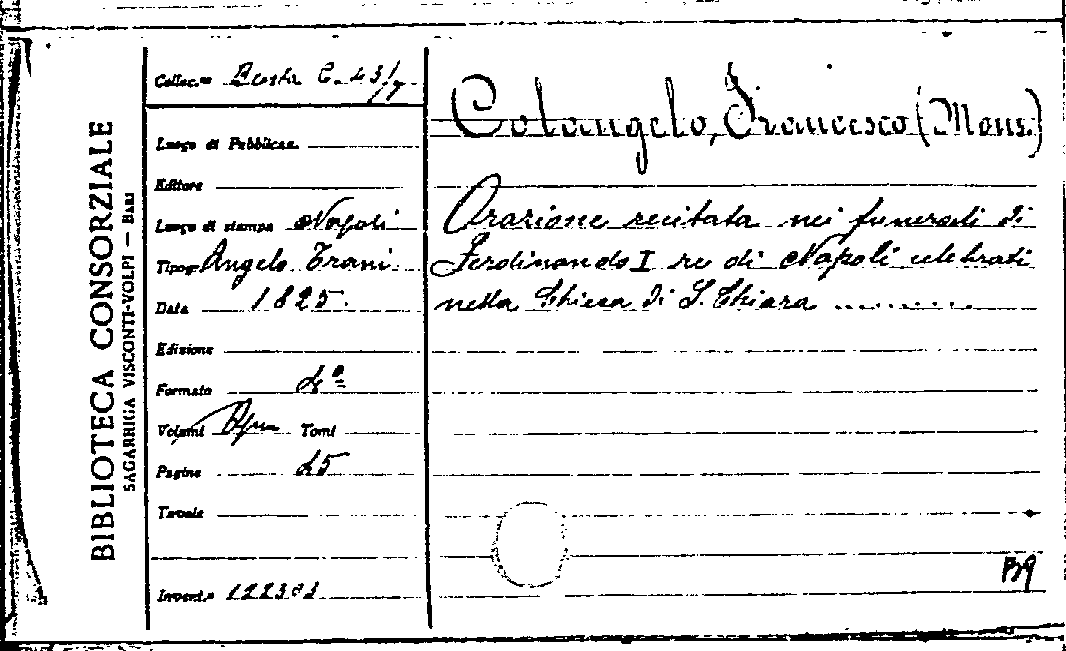 BIBLIOTECA CONSORZIALE
SAGARRIGA VISCONTI-VOLPI — BARI
Colloc.ne Busta C. 43/7
Luogo di Pubblicaz.
Editore
Luogo di stampa Napoli
Tipogr. Angelo Trani
Data 1825.
Edizione
Formato 4º
Volumi Tomi
Pagine 45
Tavole
Invent.o 122303
Colangelo, Francesco (Mons.)
Orazione recitata nei funerali di
Ferdinando I re di Napoli celebrati
nella Chiesa di S. Chiara ..........